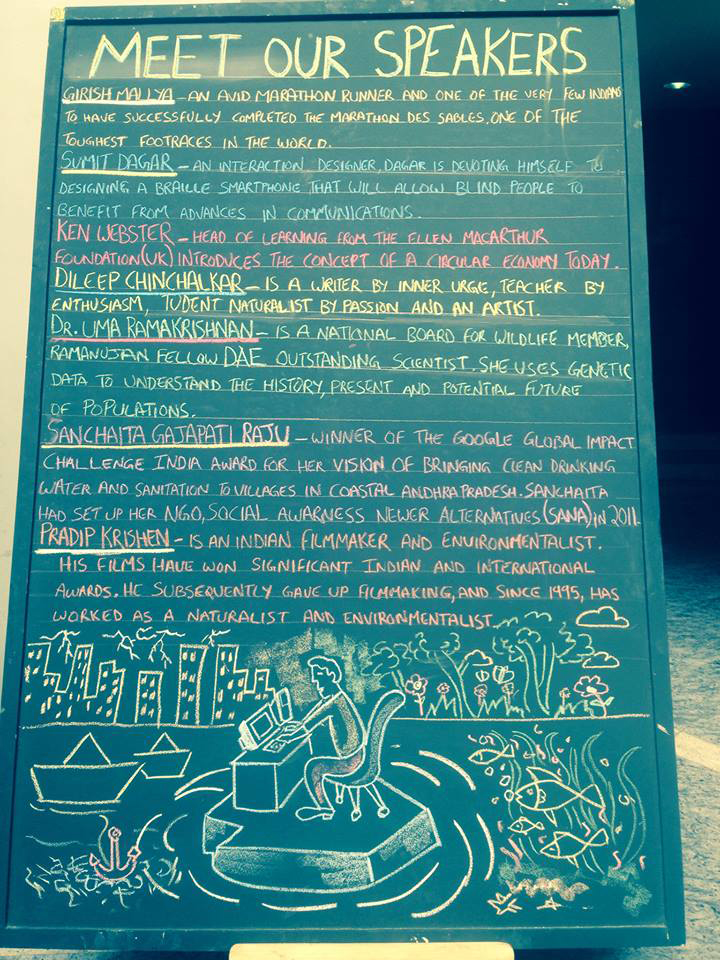 MEET OUR SPEAKERS
GIRISH MALLYA - AN AVID MARATHON RUNNER AND ONE OF THE VERY FEW INDIANS
TO HAVE SUCCESSFULLY COMPLETED THE MARATHON DES SABLES, ONE OF THE
TOUGHEST FOOTRACES IN THE WORLD.
SUMIT DAGAR - AN INTERACTION DESIGNER, DAGAR IS DEVOTING HIMSELF TO
DESIGNING A BRAILLE SMARTPHONE THAT WILL ALLOW BLIND PEOPLE TO
BENEFIT FROM ADVANCES IN COMMUNICATIONS.
KEN WEBSTER - HEAD OF LEARNING FROM THE ELLEN MACARTHUR
FOUNDATION(UK) INTRODUCES THE CONCEPT OF A CIRCULAR ECONOMY TODAY.
DILEEP CHINCHALKAR - IS A WRITER BY INNER URGE, TEACHER BY
ENTHUSIASM, TUDENT NATURALIST BY PASSION AND AN ARTIST.
DR. UMA RAMAKRISHNAN - IS A NATIONAL BOARD FOR WILDLIFE MEMBER,
RAMANUJAN FELLOW DAE OUTSTANDING SCIENTIST. SHE USES GENETIC
DATA TO UNDERSTAND THE HISTORY, PRESENT AND POTENTIAL FUTURE
OF POPULATIONS.
SANCHAITA GAJAPATI RAJU - WINNER OF THE GOOGLE GLOBAL IMPACT
CHALLENGE INDIA AWARD FOR HER VISION OF BRINGING CLEAN DRINKING
WATER AND SANITATION TO VILLAGES IN COASTAL ANDHRA PRADESH. SANCHAITA
HAD SET UP HER NGO, SOCIAL AWARNESS NEWER ALTERNATIVES (SANA) IN 2011.
PRADIP KRISHEN - IS AN INDIAN FILMMAKER AND ENVIRONMENTALIST.
HIS FILMS HAVE WON SIGNIFICANT INDIAN AND INTERNATIONAL
AWARDS. HE SUBSEQUENTLY GAVE UP FILMMAKING, AND SINCE 1995, HAS
WORKED AS A NATURALIST AND ENVIRONMENTALIST.